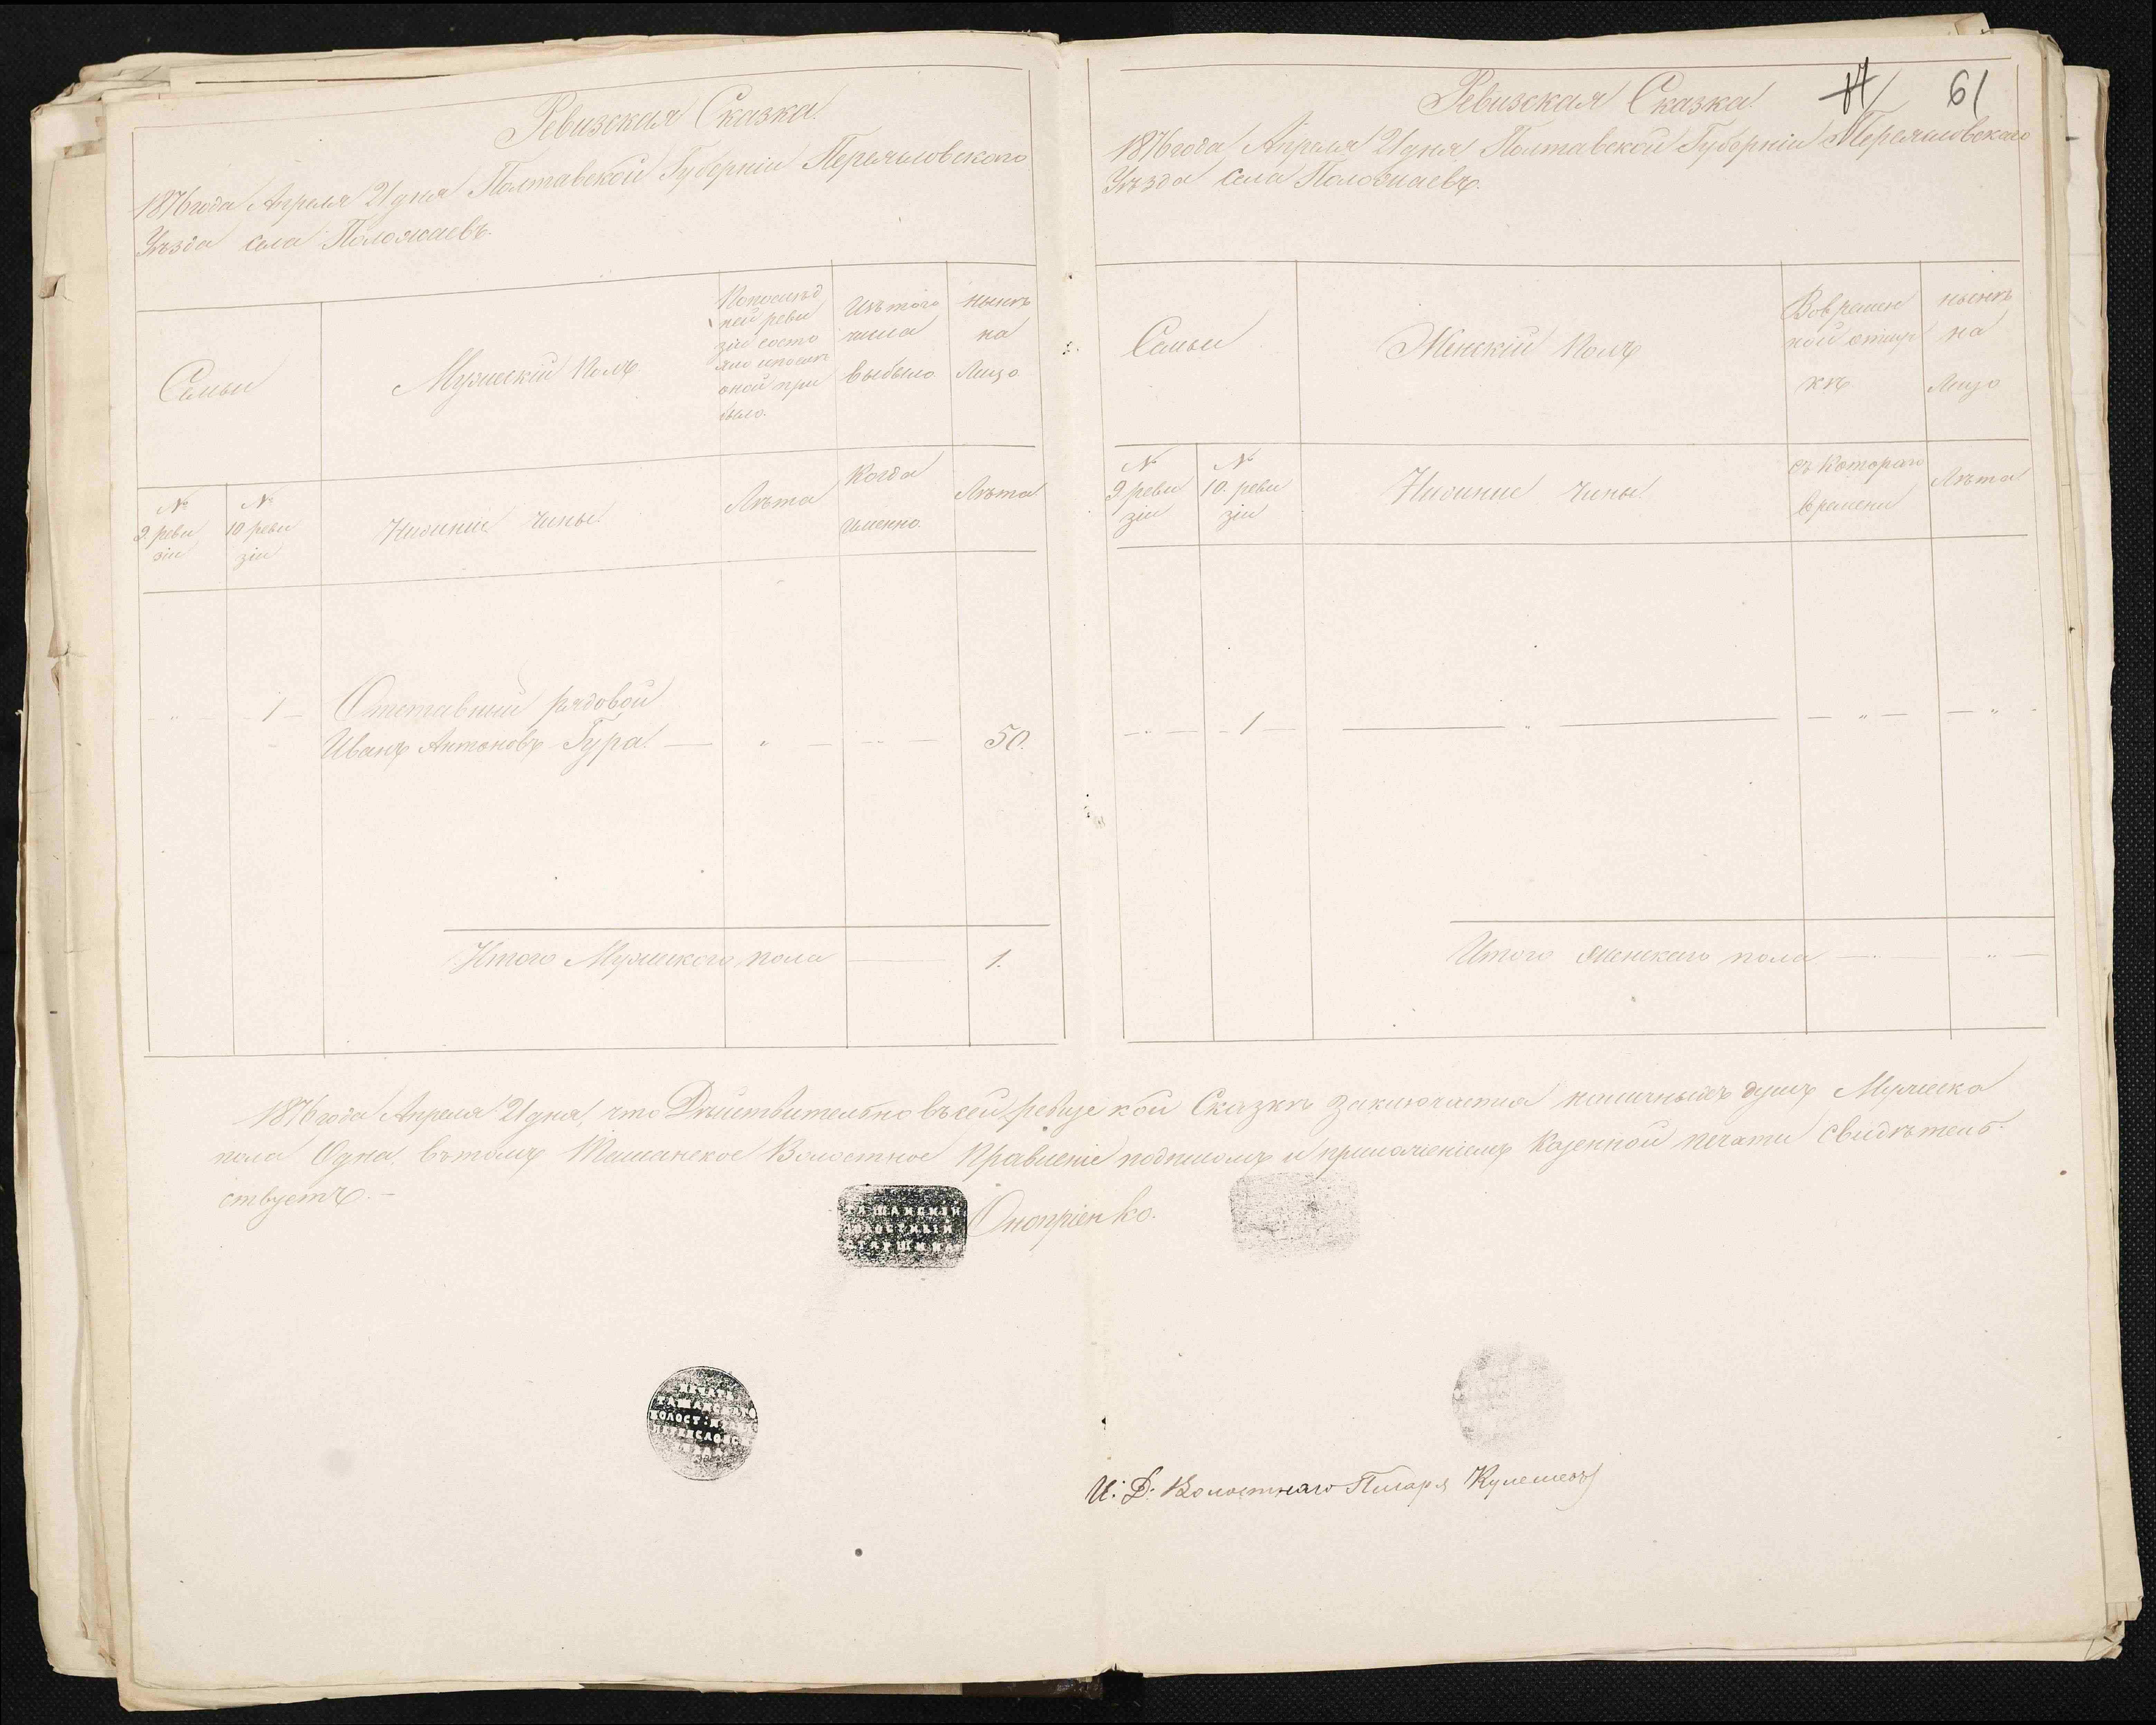 Ревизская Сказка.
1876 года Апреля 21 дня Полтавской Губерніи Переяславского
Уѣзда села Положаевъ.
Семьи
Мужескій Полъ
По послѣд
ней реви
зіи состо
яло и послѣ
оной при
было.
Изъ того
числа
выбыло
Нынѣ
на
Лицо
№
9 реви
зіи
№
10 реви
зіи
Нижніи чины
Лѣта
Когда
именно
Лѣта
1
Отставный рядовой
Иванъ Антоновъ Гура
50.
Итого Мужеского пола
1.
61
Ревизская Сказка
1876 года Апреля 21 дня Полтавской Губерніи Переяславского
Уѣзда села Положаевъ.
Семьи
Женскій Полъ
Во времен
ной отлуч
кѣ
нынѣ
на
Лицо
№
9 реви
зіи
№
10. реви
зіи
Нижніе чины
съ Котораго
времени
Лѣта
1
Итого женскаго пола
1876 года Апреля 21 дня, что Дѣйствительно въ сей ревизской Сказкѣ заключается наличныхъ душъ Мужеска
пола Одна въ томъ Ташанское Волостное Правленіе подписомъ и приложеніемъ Казенной печати свидѣтель-
ствуетъ.-
ТАШАНСКІЙ
ВОЛОСТНЫЙ
СТАРШИНА
Оноприенко.
ПЕЧАТЬ
ТАШАНСКАГО
ВОЛОСТ:
ПЕРЕЯСЛОВС
И: Д: Волостнаго Писаря Кулешевъ